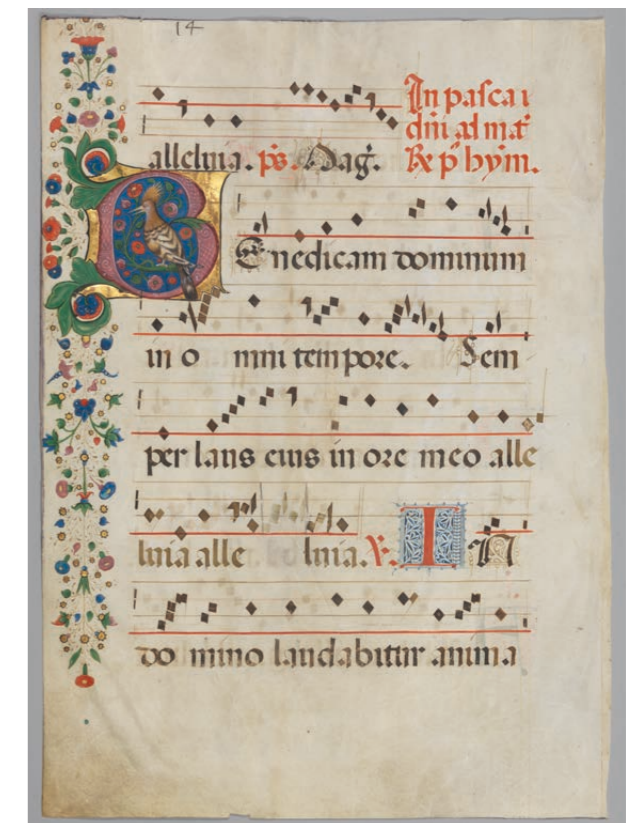 14
In pasca
alleluia. ps.
hym.
BEnedicam dominum
in o mni tempore. Sem
per laus eius in ore meo alle
luia alle luia. V. IN
do mino laudabitur anima